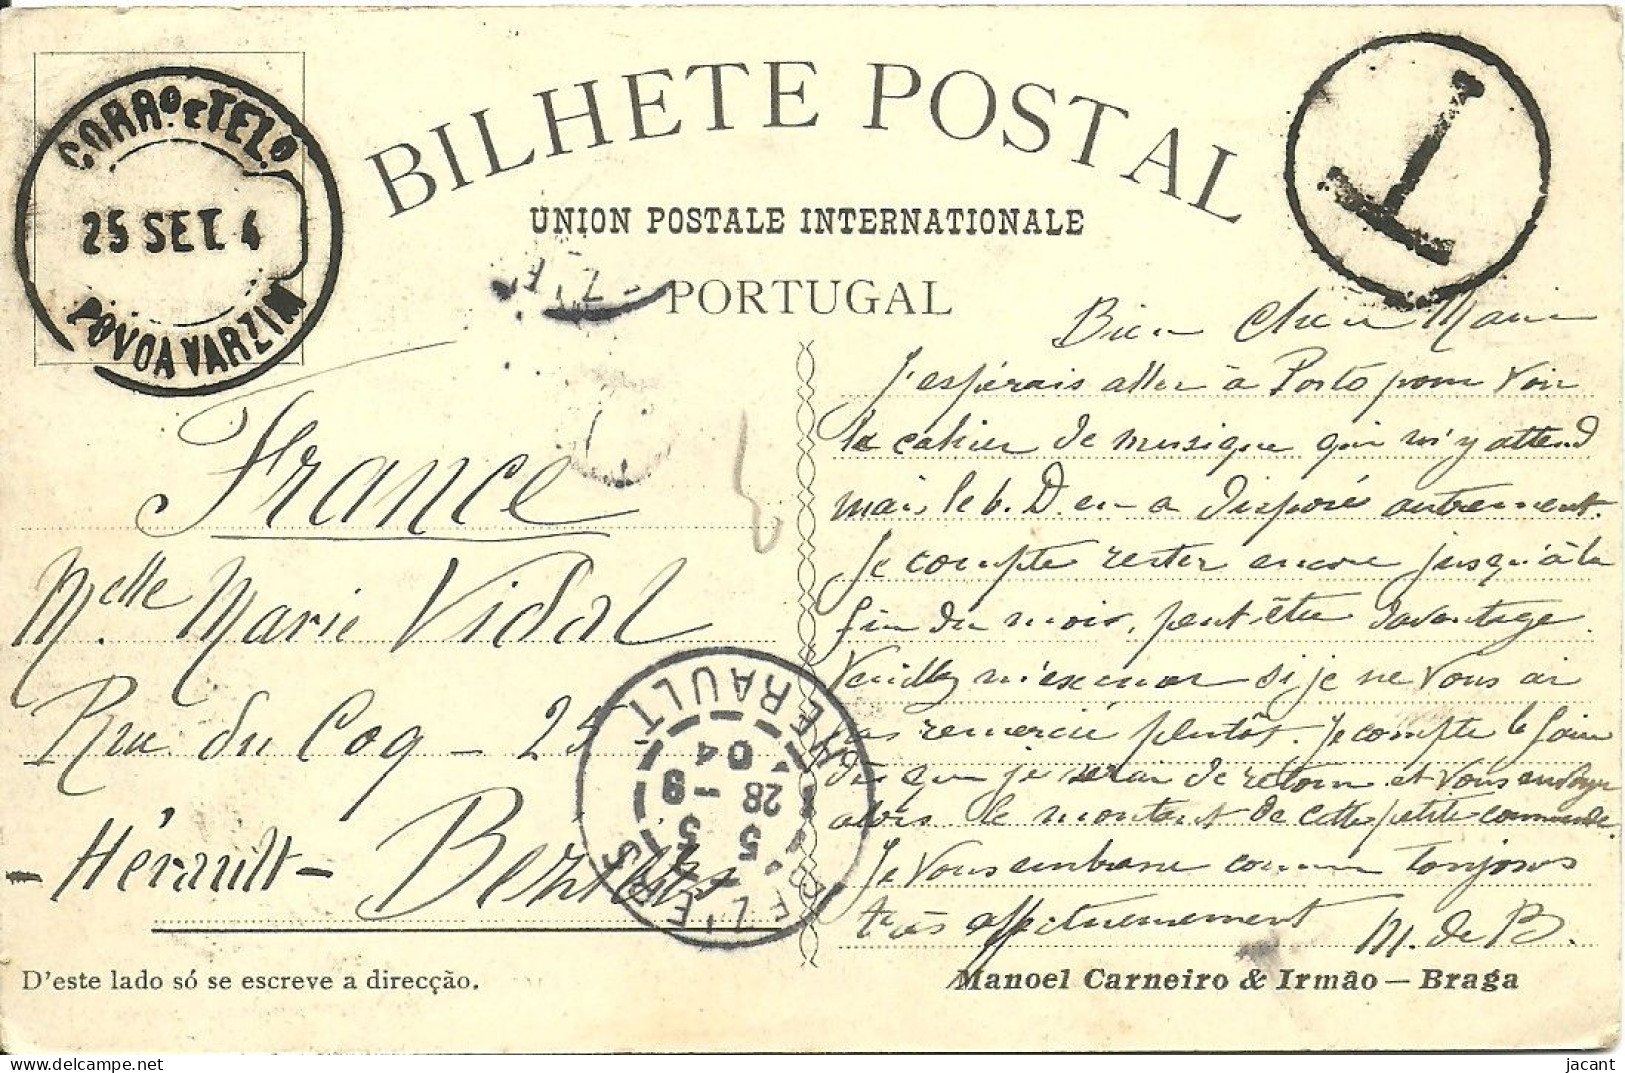 BILHETE POSTAL
UNION POSTALE INTERNATIONALE
PORTUGAL
CORRO. E TELO
25 SET. 4
POVOA VARZIM
T
France
Melle Marie Vidal
Rue du Coq - 25
- Hérault - Béziers
BEZIERS HERAULT
5 5
28 - 9
04
Bien Chère Marie
J'espérais aller à Porto pour voir
le cahier de musique qui m'y attend
mais le b. D. en a disposé autrement.
Je compte rester encore jusqu'à la
fin du mois, peut-être davantage.
Veuillez m'excuser si je ne vous ai
pas remercié plutôt. Je compte le faire
dès que je serai de retour et vous envoyer
alors le montant de cette petite commande.
Je vous embrasse comme toujours
très affectueusement M. de B.
D'este lado só se escreve a direcção.
Manoel Carneiro & Irmão — Braga
jacant